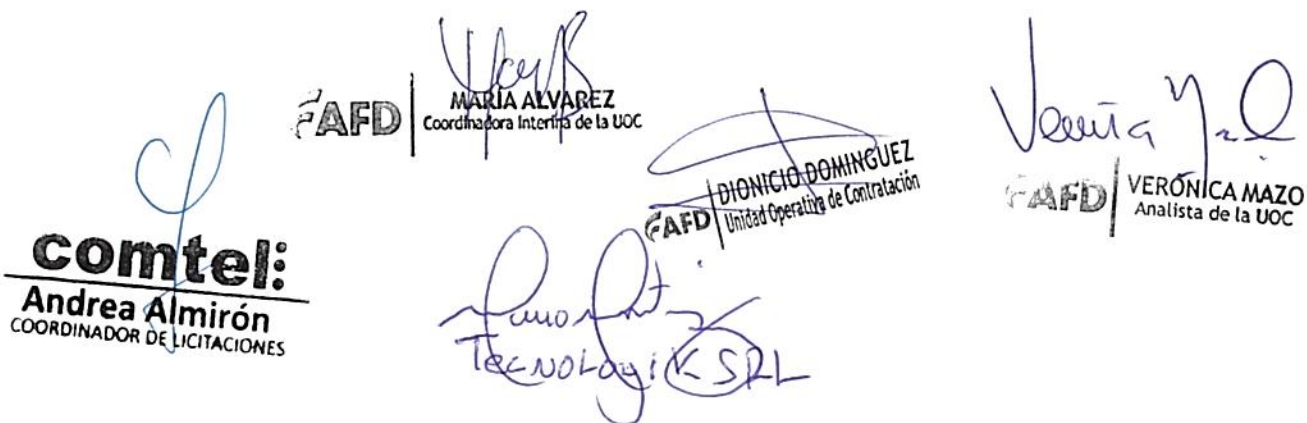 AFD
MARÍA ALVAREZ
Coordinadora Interina de la UOC
AFD
DIONICIO DOMINGUEZ
Unidad Operativa de Contratación
AFD
VERÓNICA MAZO
Analista de la UOC
comtel:
Andrea Almirón
COORDINADOR DE LICITACIONES
TecnoLogiK SRL